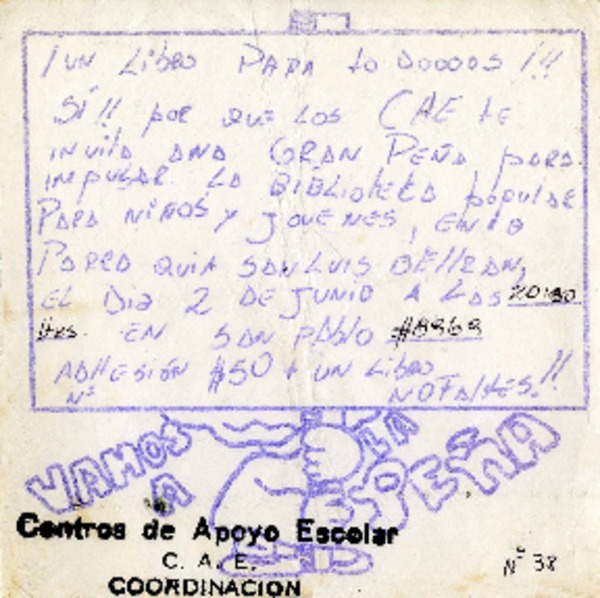 ¡UN LIBRO PARA tO DOOOOS!!!
SÍ!! POR QUE LOS CAE tE
INVItA UNA GRAN PEÑA PARA
IMPULSAR LA BIBLIOtECA POPULAR
PARA NIÑOS Y JOVENES, EN LA
PARROQUIA SAN LUIS BELTRAN,
EL DIA 2 DE JUNIO A LAS 20:30
HRS. EN SAN PABLO #8969
ADHESIÓN $50 + UN LIBRO
Nº NO FALTES.!!
VAMOS A LA PEÑA
Centros de Apoyo Escolar
C. A. E.
COORDINACION
Nº 38